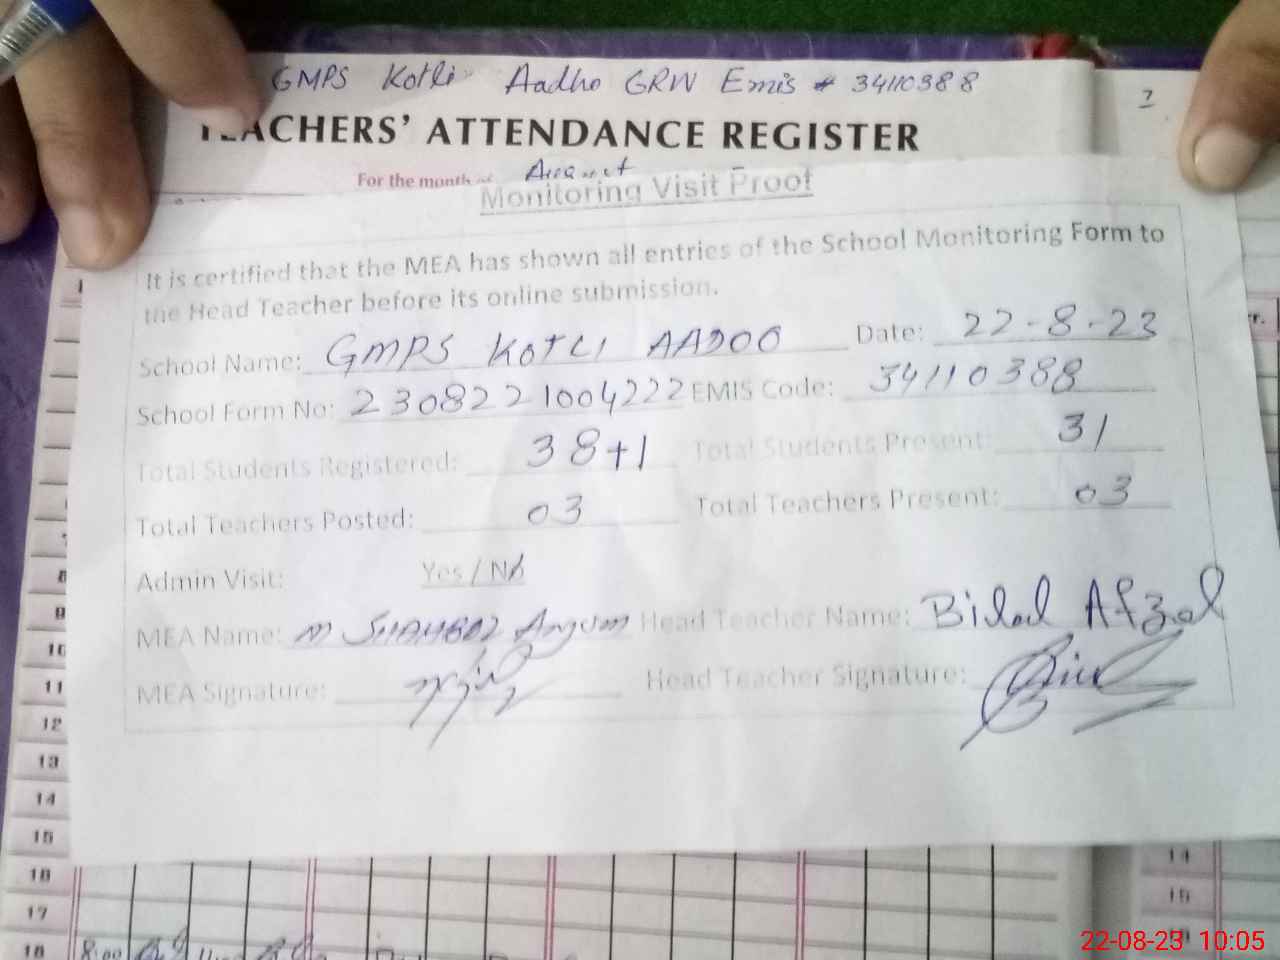 GMPS Kotli Aadho GRW Emis # 34110388
TEACHERS' ATTENDANCE REGISTER
For the month of August
Monitoring Visit Proof
It is certified that the MEA has shown all entries of the School Monitoring Form to
the Head Teacher before its online submission.
School Name: GMPS KOTLI AADOO Date: 22-8-23
School Form No: 2308221004222 EMIS Code: 34110388
Total Students Registered: 38+1 Total Students Present: 31
Total Teachers Posted: 03 Total Teachers Present: 03
Admin Visit: Yes / No
MEA Name: M SHAHBAZ Anjum Head Teacher Name: Bilal Afzal
MEA Signature: Head Teacher Signature:
8
9
10
11
12
13
14
15
16
17
18 8:00
14
15
22-08-23 10:05